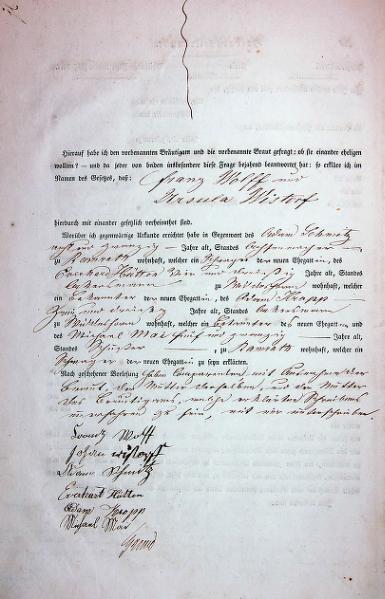 Hierauf habe ich den vorbenannten Bräutigam und die vorbenannte Braut gefragt: ob sie einander ehelichen
wollen? – und da jeder von beiden insbesondere diese Frage bejahend beantwortet hat: so erkläre ich im
Namen des Gesetzes, daß: Franz Wolff und
Ursula Wistorf
hierdurch mit einander gesetzlich verheirathet sind.
Worüber ich gegenwärtige Urkunde errichtet habe in Gegenwart des Adam Schmitz
Jahre alt, Standes
zu wohnhaft, welcher ein der neuen Ehegatten, des
Everhard Hütten vier und dreißig Jahre alt, Standes
Ackersmann zu wohnhaft, welcher
ein Bekannter der neuen Ehegatten, des Adam Kropp
zwei und dreißig Jahre alt, Standes Ackersmann
zu wohnhaft, welcher ein Bekannter der neuen Ehegatten und
des Michael Mar fünf und zwanzig Jahre alt,
Standes zu wohnhaft, welcher ein
Schwager der neuen Ehegattin zu seyn erklärten.
Nach geschehener Vorlesung haben Comparenten mit Ausnahme der
Braut, der Mutter derselben, und der Mutter
des Bräutigams, welche erklärten Schreibens
unerfahren zu sein, mit mir unterschrieben.
Frantz Wolff
Johan Wistorff
Adam Schmitz
Everhart Hütten
Adam Kropp
Michael Mar